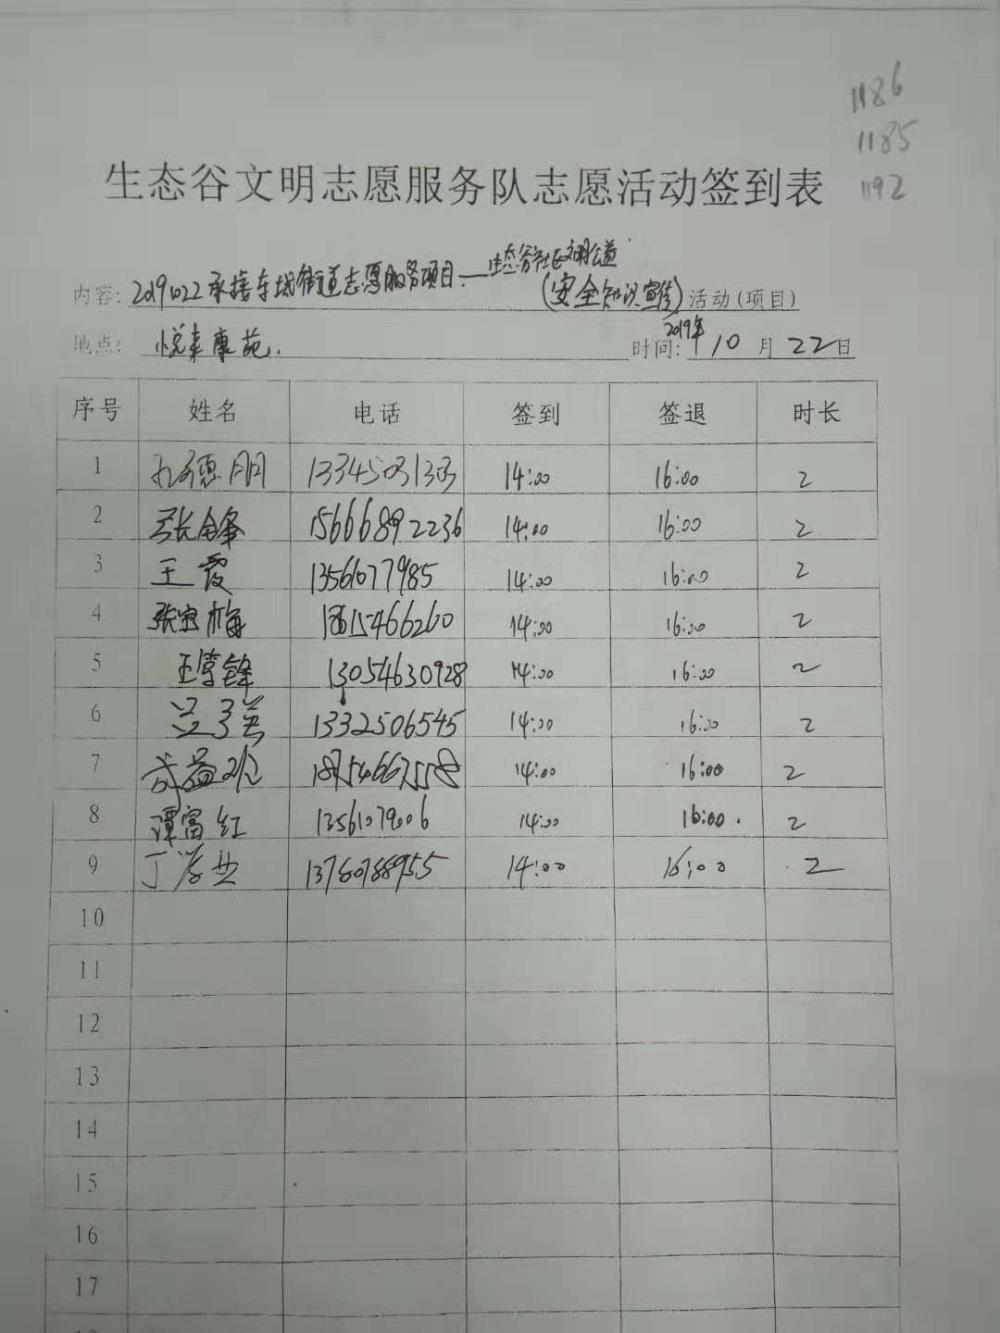 1186
1185
1192
生态谷文明志愿服务队志愿活动签到表
生态谷社区文明公道
内容: 2019.1022承接东城街道志愿服务项目— (安全知识宣传) 活动(项目)
地点: 悦来康苑. 时间: 2019年 10 月 22 日
序号 姓名 电话 签到 签退 时长
1 德明 14:00 16:00 2
2 张金峰 15666892236 14:00 16:00 2
3 王霞 13561077985 14:00 16:00 2
4 张宝梅 14:00 16:00 2
5 王学锋 13054630928 14:00 16:00 2
6 1332506545 14:00 16:00 2
7 14:00 16:00 2
8 谭富红 13561079006 14:00 16:00. 2
9 丁 14:00 16:00 2
10
11
12
13
14
15
16
17